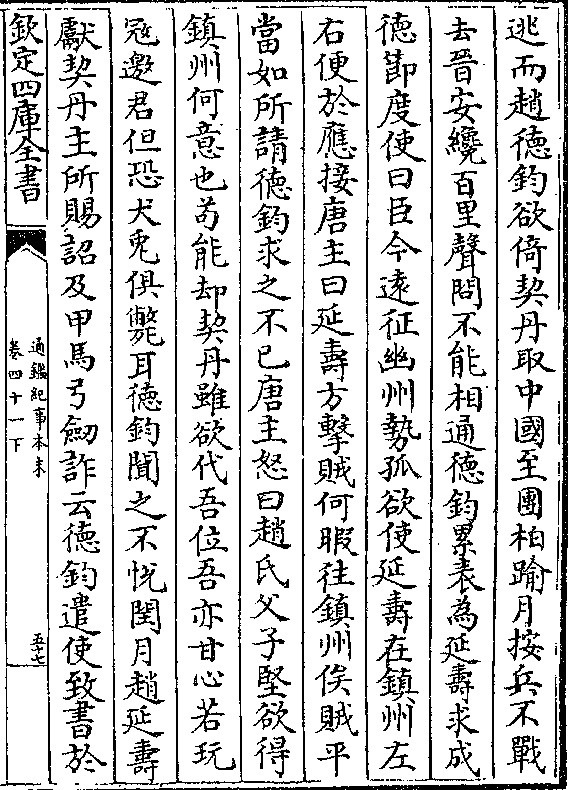 逃而趙德鈞欲倚契丹取中國至團柏踰月按兵不戰
去晉安纔百里聲問不能相通德鈞累表為延壽求成
德節度使曰臣今遠征幽州勢孤欲使延壽在鎮州左
右便於應接唐主曰延壽方擊賊何暇往鎮州俟賊平
當如所請德鈞求之不已唐主怒曰趙氏父子堅欲得
鎮州何意也苟能却契丹雖欲代吾位吾亦甘心若玩
冦邀君但恐犬兎俱斃耳德鈞聞之不悅閏月趙延壽
獻契丹主所賜詔及甲馬弓劒詐云德鈞遣使致書於
欽定四庫全書
通鑑紀事本末
卷四十一下
五十七